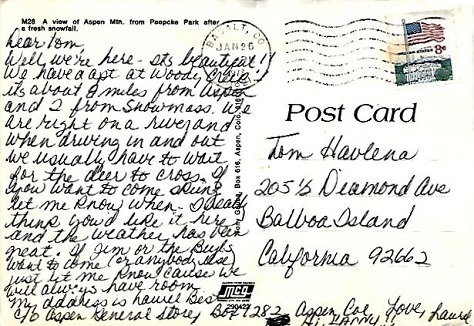 M28 A view of Aspen Mtn. from Paepcke Park after
a fresh snowfall.
Dear Tom,
Well, we're here - its beautiful!!
We have a apt at Woody Creek -
its about 8 miles from Aspen
and 2 from Snowmass. We
are right on a river, and
when driving in and out
we usually have to wait
for the deer to cross. If
you want to come skiing
let me know when - I really
think you'd like it here
and the weather has been
great. If Jim or the
want to come (or anybody else)
just let me know cause we
will always have room
My address is Laurie
c/o Aspen General Store, Box 9282, Aspen Col.
Love, Laurie
BASALT, CO
JAN 26
8c
Box 616, Aspen, Colo.
Post Card
Tom Havlena
205½ Diamond Ave
Balboa Island
California 92662
290422